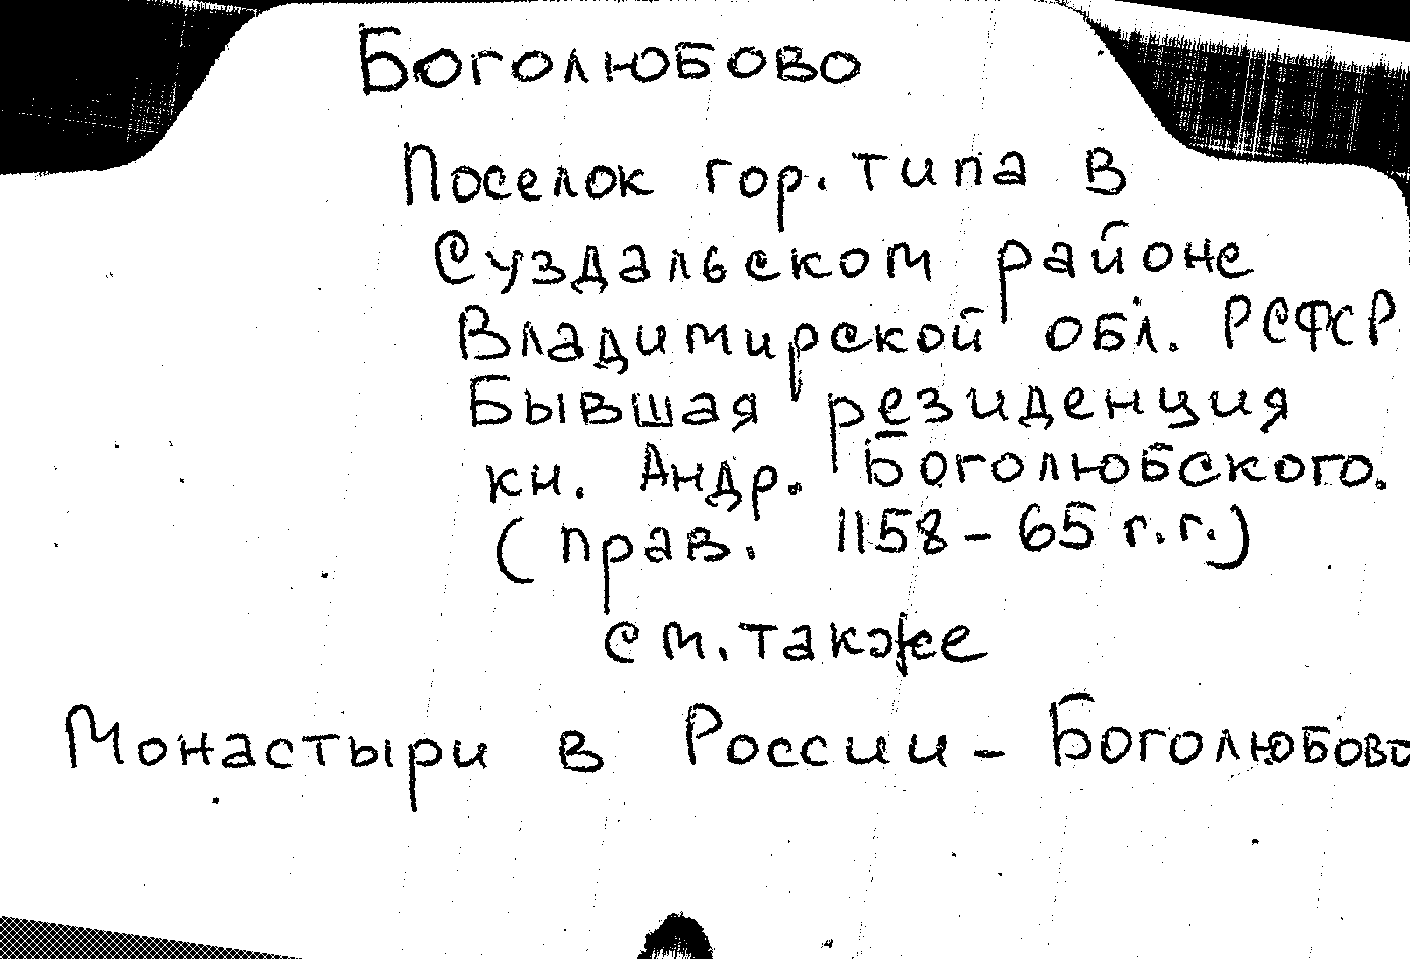 Боголюбово
Поселок гор. типа в
Суздальском районе
Владимирской обл. РСФСР
Бывшая резиденция
кн. Андр. Боголюбского.
(прав. 1158-65 г.г.)
см. также
Монастыри в России - Боголюбово